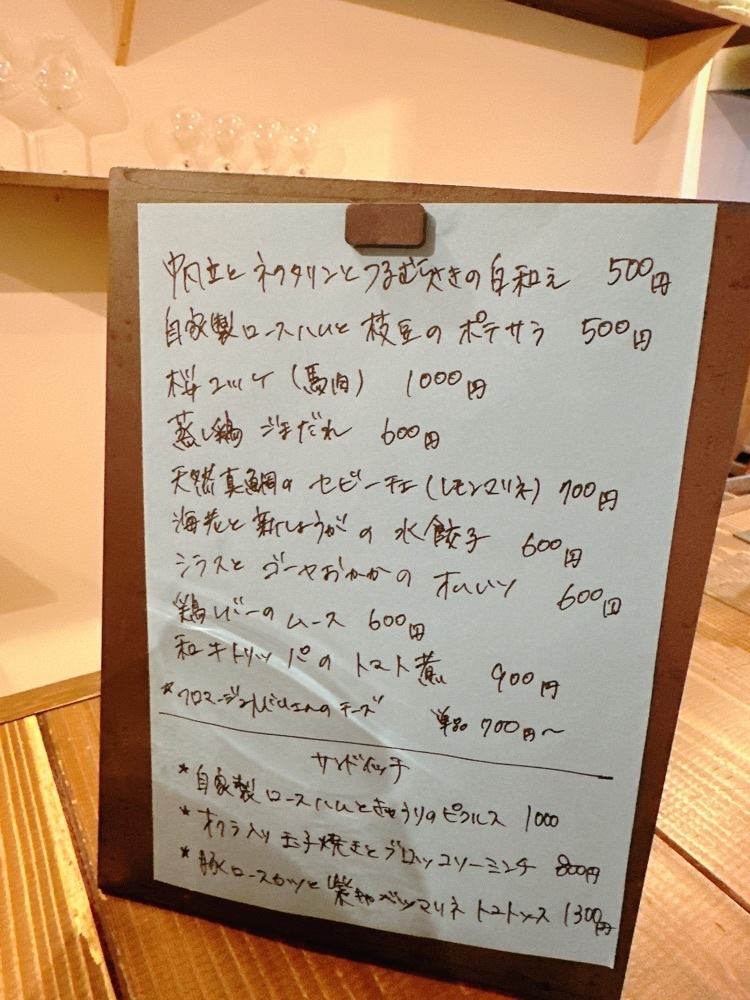 帆立とネクタリンとつるむらさきの白和え 500円
自家製ロースハムと枝豆のポテサラ 500円
桜ユッケ(馬肉) 1000円
蒸し鶏 ごまだれ 600円
天然真鯛のセビーチェ(レモンマリネ) 700円
海老と新しょうがの水餃子 600円
シラスとゴーヤおかかのオムレツ 600円
鶏レバーのムース 600円
和牛トリッパのトマト煮 900円
*フロマージュ のチーズ 単品 700円〜
サンドイッチ
*自家製ロースハムときゅうりのピクルス 1000
*オクラ入り玉子焼きとブロッコリーミンチ 800円
*豚ロースカツと紫キャベツマリネ トマトソース 1300円